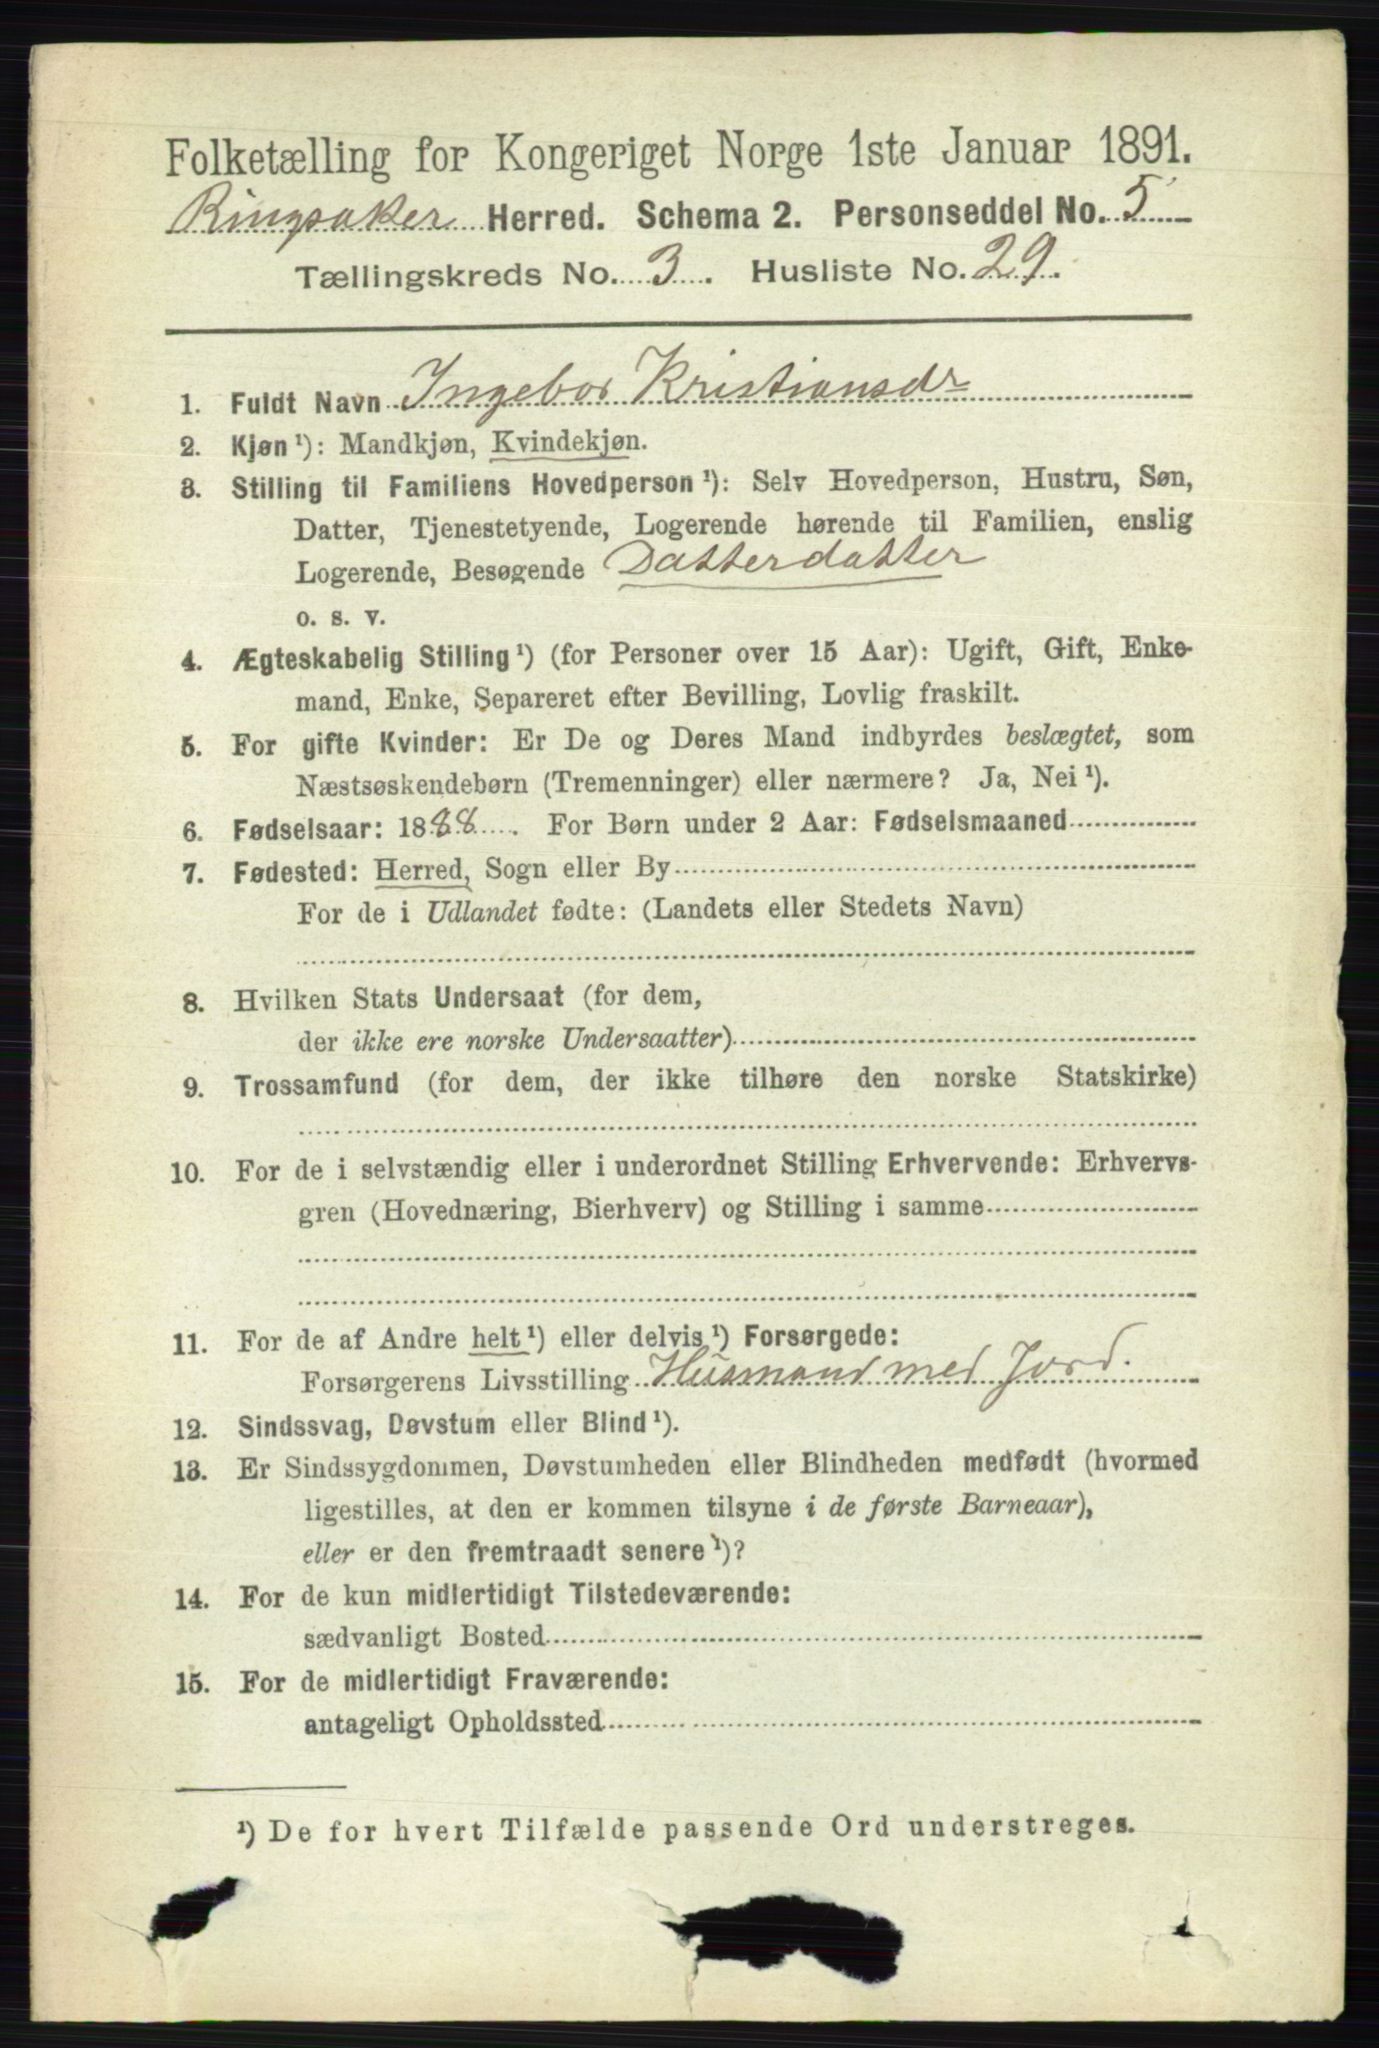 Folketælling for Kongeriget Norge 1ste Januar 1891.
Ringsaker Herred. Schema 2. Personseddel No. 5
Tællingskreds No. 3. Husliste No. 29.
1. Fuldt Navn Ingebor Kristiansdr
2. Kjøn ¹): Mandkjøn, Kvindekjøn.
3. Stilling til Familiens Hovedperson ¹): Selv Hovedperson, Hustru, Søn,
Datter, Tjenestetyende, Logerende hørende til Familien, enslig
Logerende, Besøgende Datterdatter
o. s. v.
4. Ægteskabelig Stilling ¹) (for Personer over 15 Aar): Ugift, Gift, Enke-
mand, Enke, Separeret efter Bevilling, Lovlig fraskilt.
5. For gifte Kvinder: Er De og Deres Mand indbyrdes beslægtet, som
Næstsøskendebørn (Tremenninger) eller nærmere? Ja, Nei ¹).
6. Fødselsaar: 1888. For Børn under 2 Aar: Fødselsmaaned
7. Fødested: Herred, Sogn eller By
For de i Udlandet fødte: (Landets eller Stedets Navn)
8. Hvilken Stats Undersaat (for dem,
der ikke ere norske Undersaatter)
9. Trossamfund (for dem, der ikke tilhøre den norske Statskirke)
10. For de i selvstændig eller i underordnet Stilling Erhvervende: Erhvervs-
gren (Hovednæring, Bierhverv) og Stilling i samme
11. For de af Andre helt ¹) eller delvis ¹) Forsørgede:
Forsørgerens Livsstilling Husmand med Jord.
12. Sindssvag, Døvstum eller Blind ¹).
13. Er Sindssygdommen, Døvstumheden eller Blindheden medfødt (hvormed
ligestilles, at den er kommen tilsyne i de første Barneaar),
eller er den fremtraadt senere ¹)?
14. For de kun midlertidigt Tilstedeværende:
sædvanligt Bosted
15. For de midlertidigt Fraværende:
antageligt Opholdssted
¹) De for hvert Tilfælde passende Ord understreges.